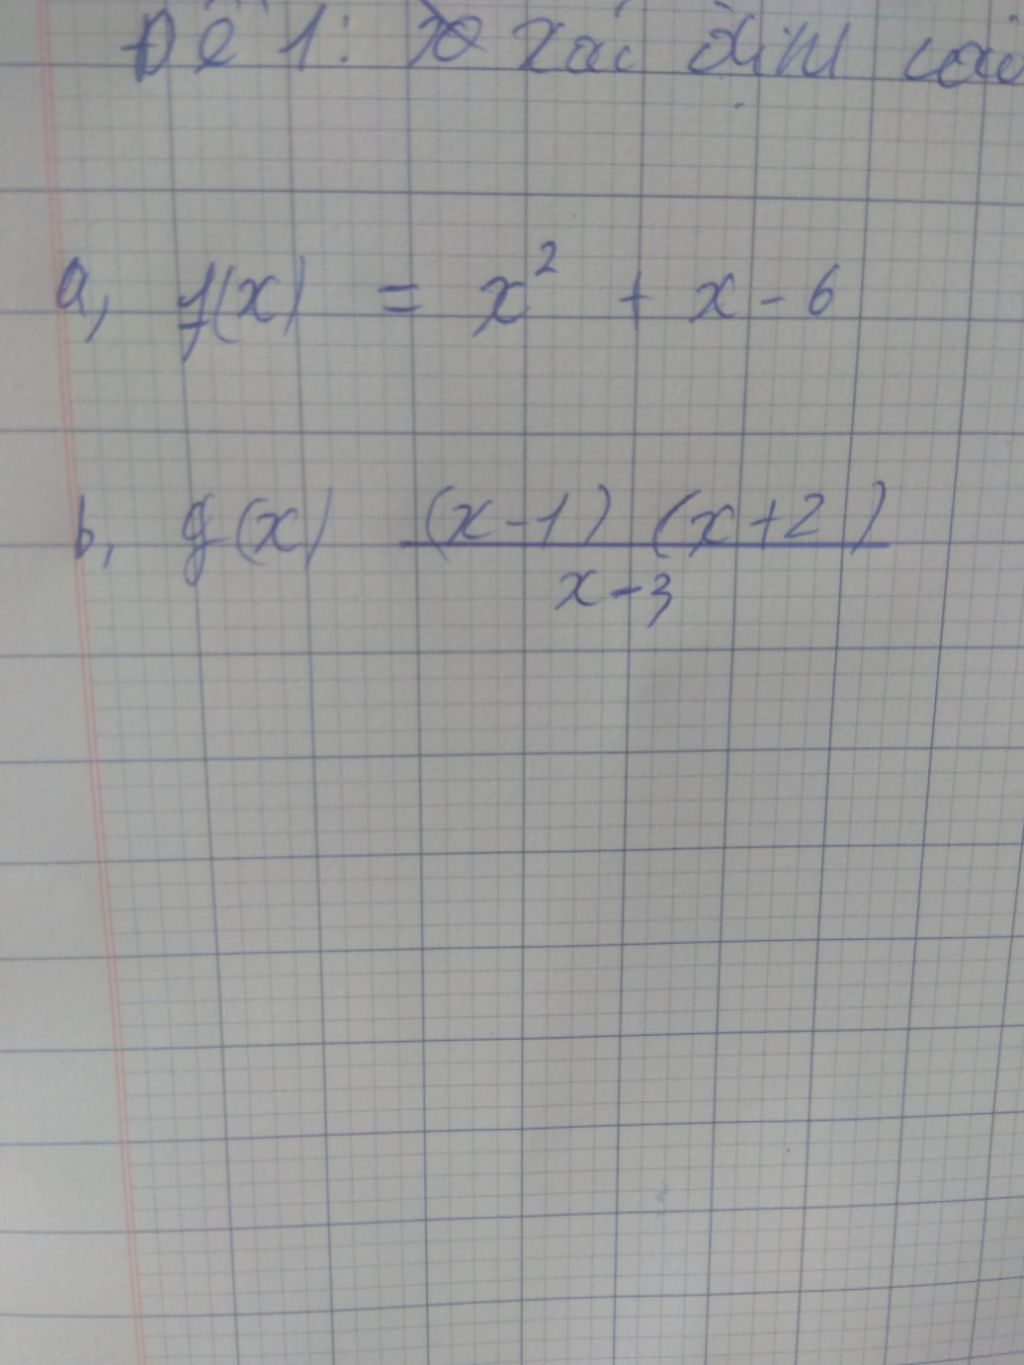 Đề 1: xác định
a, f(x) = x² + x - 6
b, g(x) (x-1) (x+2) / x-3